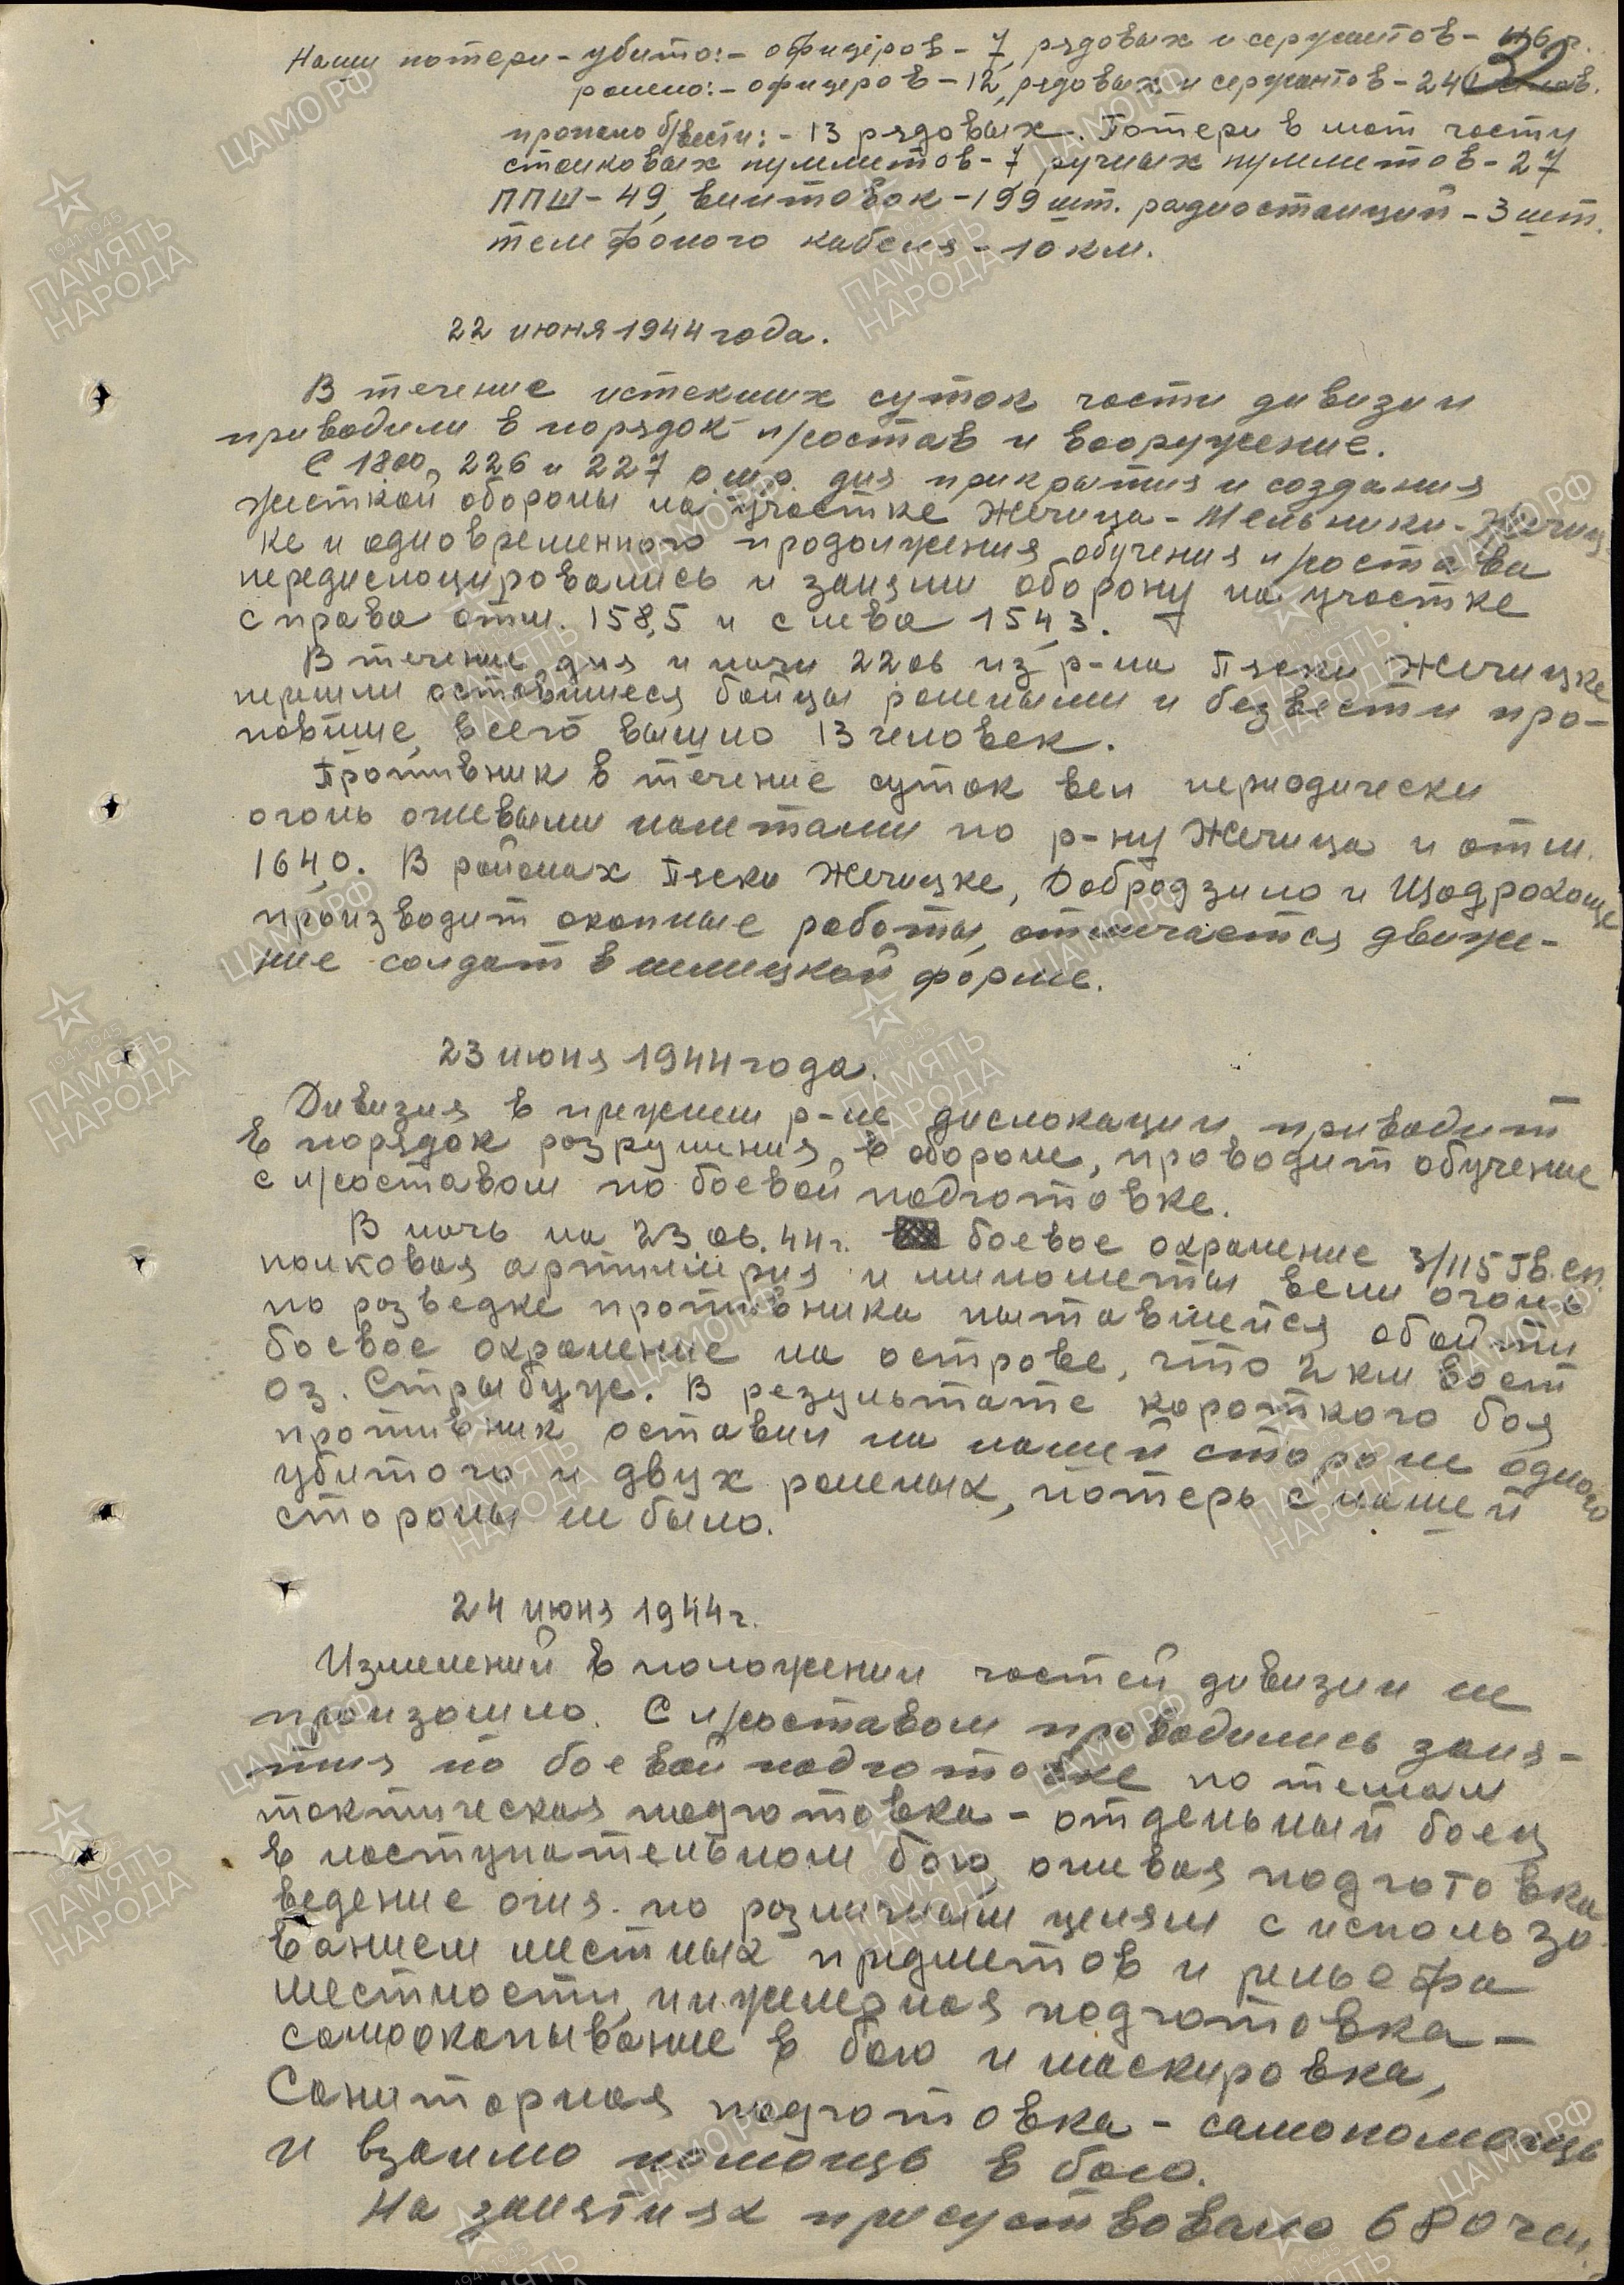 Наши потери - убито: - офицеров - 7, рядовых и сержантов - 116 ч.
32
ранено: - офицеров - 12, рядовых и сержантов - 240 челов.
пропало б/вести: - 13 рядовых. Потери в мат части
станковых пулеметов - 7 ручных пулеметов - 27
ППШ - 49, винтовок - 199 шт. радиостанций - 3 шт.
телефоного кабеля - 10 км.
22 июня 1944 года.
В течение истекших суток части дивизии
приводили в порядок л/состав и вооружение.
С 18 00, 226 и 227 о.ш.р. для прикрытия и создания
жесткой обороны на участке Жечица - Мельники - Жечиц-
ке и одновременного продолжения обучения л/состава
передислоцировались и заняли оборону на участке
справа отм. 158,5 и слева 154,3.
В течение дня и ночи 22 06 из р-на Пяски Жечицке
пришли оставшиеся бойцы ранеными и безвести про-
павшие, всего вышло 13 человек.
Противник в течение суток вел периодически
огонь огневыми налетами по р-ну Жечица и отм.
164,0. В районах Пяски Жечицке, Добродзило и Щодрохоще
производит окопные работы, отмечается движе-
ние солдат в немецкой форме.
23 июня 1944 года.
Дивизия в прежнем р-не дислокации приводит
в порядок разрушения в обороне, проводит обучение
с л/составом по боевой подготовке.
В ночь на 23.06.44 г. боевое охранение 3/115 Гв. сп.
полковая артиллерия и минометы вели огонь
по разведке противника пытавшейся обойти
боевое охранение на острове, что 2 км вост
оз. Стрыбуж. В результате короткого боя
противник оставил на нашей стороне одного
убитого и двух раненых, потерь с нашей
стороны не было.
24 июня 1944 г.
Изменений в положении частей дивизии не
произошло. С л/составом проводились заня-
тия по боевой подготовке по темам
тактическая подготовка - отдельный боец
в наступательном бою, огневая подготовка
ведение огня по различным целям с использо-
ванием местных предметов и рельефа
местности, инженерная подготовка -
самоокапывание в бою и маскировка,
Санитарная подготовка - самопомощь
и взаимо помощь в бою.
На занятиях присутствовало 680 чел.
ЦАМО РФ
1941-1945
ПАМЯТЬ
НАРОДА